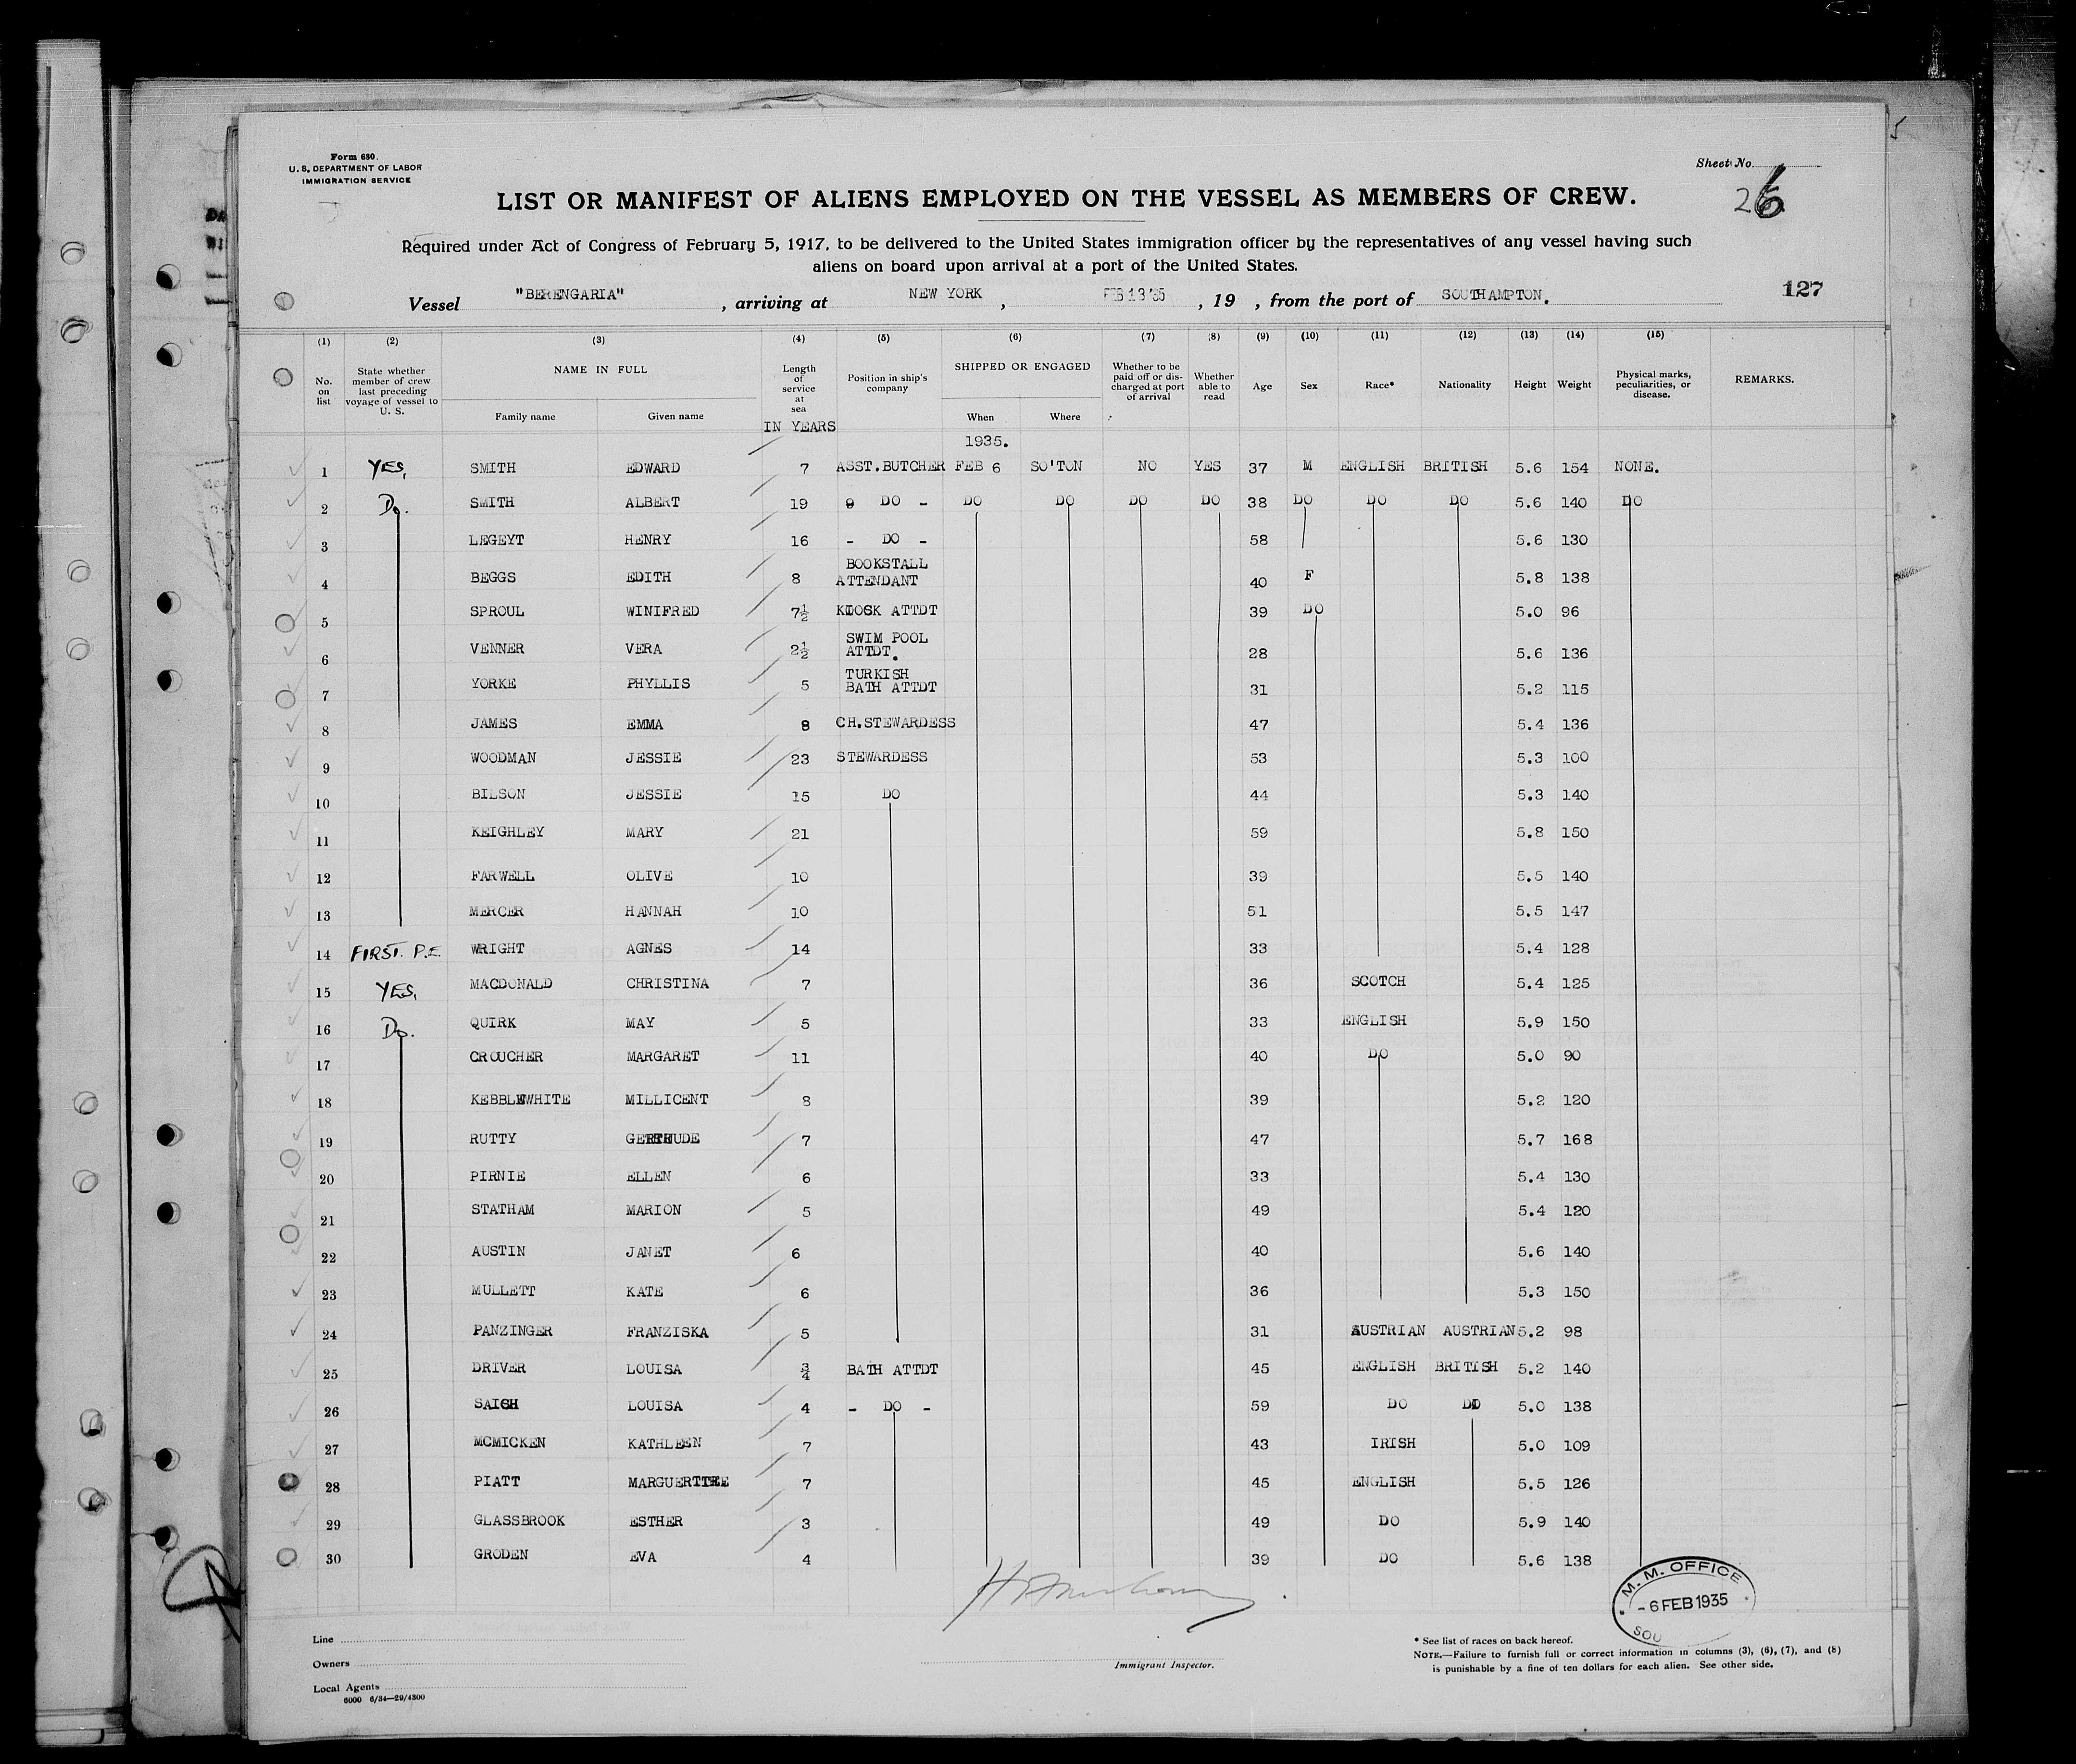 Form 680.
U. S. DEPARTMENT OF LABOR
IMMIGRATION SERVICE
Sheet No.
26
LIST OR MANIFEST OF ALIENS EMPLOYED ON THE VESSEL AS MEMBERS OF CREW.
Required under Act of Congress of February 5, 1917, to be delivered to the United States immigration officer by the representatives of any vessel having such
aliens on board upon arrival at a port of the United States.
Vessel "BERENGARIA" , arriving at NEW YORK , FEB 13 '35 , 19 , from the port of SOUTHAMPTON. 127
(1) (2) (3) (4) (5) (6) (7) (8) (9) (10) (11) (12) (13) (14) (15)
No. on list State whether member of crew last preceding voyage of vessel to U. S. NAME IN FULL Family name Given name Length of service at sea IN YEARS Position in ship's company SHIPPED OR ENGAGED When Where Whether to be paid off or discharged at port of arrival Whether able to read Age Sex Race* Nationality Height Weight Physical marks, peculiarities, or disease. REMARKS.
1935.
1 YES, SMITH EDWARD 7 ASST.BUTCHER FEB 6 SO'TON NO YES 37 M ENGLISH BRITISH 5.6 154 NONE.
2 Do. SMITH ALBERT 19 DO - DO DO DO DO 38 DO DO DO 5.6 140 DO
3 LEGEYT HENRY 16 - DO - 58 5.6 130
4 BEGGS EDITH 8 BOOKSTALL ATTENDANT 40 F 5.8 138
5 SPROUL WINIFRED 7½ KIOSK ATTDT 39 DO 5.0 96
6 VENNER VERA 2½ SWIM POOL ATTDT. 28 5.6 136
7 YORKE PHYLLIS 5 TURKISH BATH ATTDT 31 5.2 115
8 JAMES EMMA 8 CH.STEWARDESS 47 5.4 136
9 WOODMAN JESSIE 23 STEWARDESS 53 5.3 100
10 BILSON JESSIE 15 DO 44 5.3 140
11 KEIGHLEY MARY 21 59 5.8 150
12 FARWELL OLIVE 10 39 5.5 140
13 MERCER HANNAH 10 51 5.5 147
14 FIRST. P.E. WRIGHT AGNES 14 33 5.4 128
15 YES, MACDONALD CHRISTINA 7 36 SCOTCH 5.4 125
16 Do. QUIRK MAY 5 33 ENGLISH 5.9 150
17 CROUCHER MARGARET 11 40 DO 5.0 90
18 KEBBLEWHITE MILLICENT 8 39 5.2 120
19 RUTTY GERTRUDE 7 47 5.7 168
20 PIRNIE ELLEN 6 33 5.4 130
21 STATHAM MARION 5 49 5.4 120
22 AUSTIN JANET 6 40 5.6 140
23 MULLETT KATE 6 36 5.3 150
24 PANZINGER FRANZISKA 5 31 AUSTRIAN AUSTRIAN 5.2 98
25 DRIVER LOUISA ¾ BATH ATTDT 45 ENGLISH BRITISH 5.2 140
26 SAICH LOUISA 4 - DO - 59 DO DO 5.0 138
27 MCMICKEN KATHLEEN 7 43 IRISH 5.0 109
28 PIATT 7 45 ENGLISH 5.5 126
29 GLASSBROOK ESTHER 3 49 DO 5.9 140
30 GRODEN EVA 4 39 DO 5.6 138
M. M. OFFICE
- 6 FEB 1935
SOU
Line
Owners
Local Agents
6000 6/34—29/4300
Immigrant Inspector.
* See list of races on back hereof.
NOTE.—Failure to furnish full or correct information in columns (3), (6), (7), and (8)
is punishable by a fine of ten dollars for each alien. See other side.